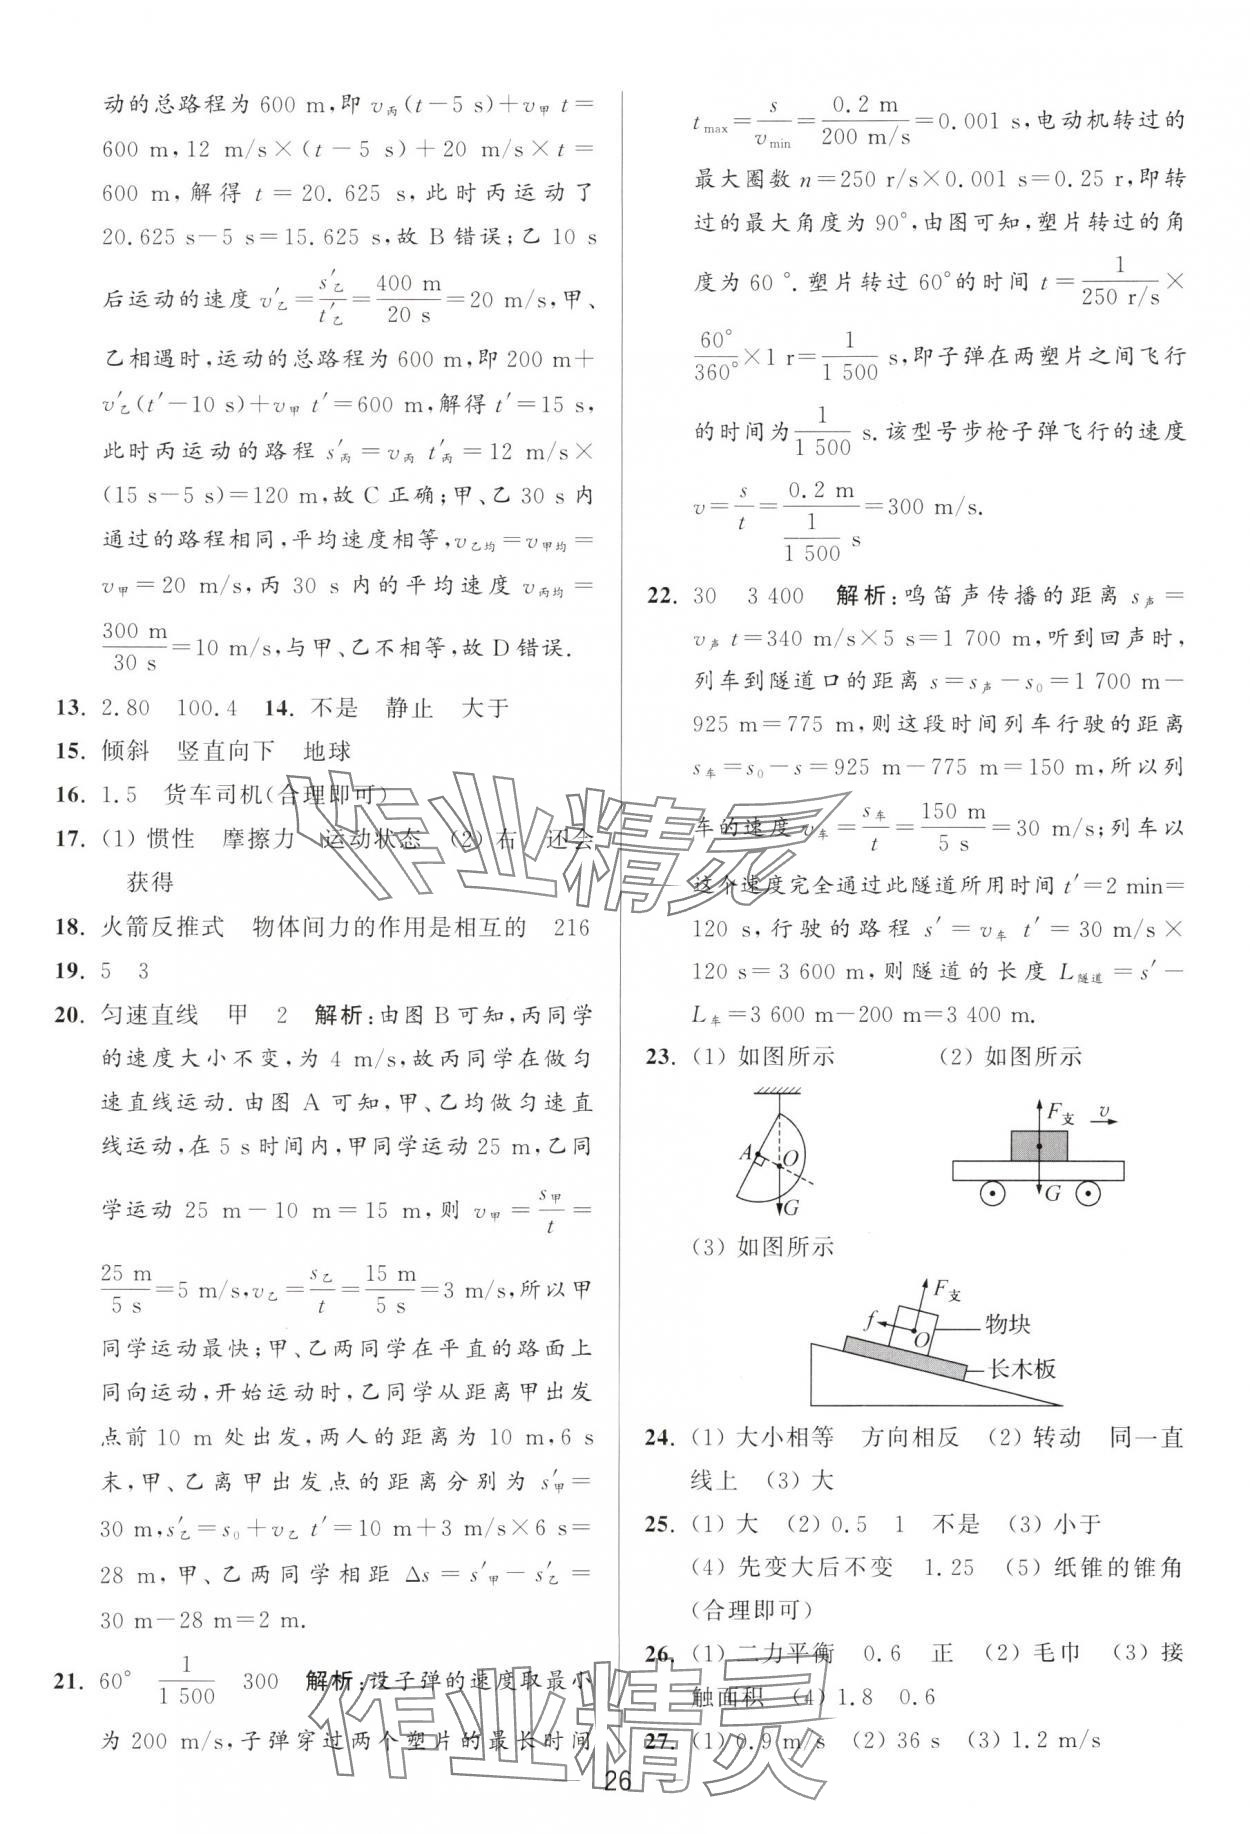 动的总路程为 600 m,即 v丙(t－5 s)＋v甲 t＝
600 m,12 m/s×(t－5 s)＋20 m/s×t＝
600 m,解得 t＝20.625 s,此时丙运动了
20.625 s－5 s＝15.625 s,故 B 错误;乙 10 s
后运动的速度 v′乙＝s′乙/t′乙＝400 m/20 s＝20 m/s,甲、
乙相遇时,运动的总路程为 600 m,即 200 m＋
v′乙(t′－10 s)＋v甲 t′＝600 m,解得 t′＝15 s,
此时丙运动的路程 s′丙＝v丙 t′丙＝12 m/s×
(15 s－5 s)＝120 m,故 C 正确;甲、乙 30 s 内
通过的路程相同,平均速度相等,v乙均＝v甲均＝
v甲＝20 m/s,丙 30 s 内的平均速度 v丙均＝
300 m/30 s＝10 m/s,与甲、乙不相等,故 D 错误.
13. 2.80 100.4 14. 不是 静止 大于
15. 倾斜 竖直向下 地球
16. 1.5 货车司机(合理即可)
17. (1) 惯性 摩擦力 运动状态 (2) 右 还会
获得
18. 火箭反推式 物体间力的作用是相互的 216
19. 5 3
20. 匀速直线 甲 2 解析:由图 B 可知,丙同学
的速度大小不变,为 4 m/s,故丙同学在做匀
速直线运动.由图 A 可知,甲、乙均做匀速直
线运动,在 5 s 时间内,甲同学运动 25 m,乙同
学运动 25 m－10 m＝15 m,则 v甲＝s甲/t＝
25 m/5 s＝5 m/s,v乙＝s乙/t＝15 m/5 s＝3 m/s,所以甲
同学运动最快;甲、乙两同学在平直的路面上
同向运动,开始运动时,乙同学从距离甲出发
点前 10 m 处出发,两人的距离为 10 m,6 s
末,甲、乙离甲出发点的距离分别为 s′甲＝
30 m,s′乙＝s0＋v乙 t′＝10 m＋3 m/s×6 s＝
28 m,甲、乙两同学相距 Δs＝s′甲－s′乙＝
30 m－28 m＝2 m.
21. 60° 1/1 500 300 解析:设子弹的速度取最小
为 200 m/s,子弹穿过两个塑片的最长时间
tmax＝s/vmin＝0.2 m/200 m/s＝0.001 s,电动机转过的
最大圈数 n＝250 r/s×0.001 s＝0.25 r,即转
过的最大角度为 90°,由图可知,塑片转过的角
度为 60 °.塑片转过 60°的时间 t＝1/250 r/s×
60°/360°×1 r＝1/1 500 s,即子弹在两塑片之间飞行
的时间为 1/1 500 s.该型号步枪子弹飞行的速度
v＝s/t＝0.2 m/(1/1 500 s)＝300 m/s.
22. 30 3 400 解析:鸣笛声传播的距离 s声＝
v声 t＝340 m/s×5 s＝1 700 m,听到回声时,
列车到隧道口的距离 s＝s声－s0＝1 700 m－
925 m＝775 m,则这段时间列车行驶的距离
s车＝s0－s＝925 m－775 m＝150 m,所以列
车的速度 v车＝s车/t＝150 m/5 s＝30 m/s;列车以
这个速度完全通过此隧道所用时间 t′＝2 min＝
120 s,行驶的路程 s′＝v车 t′＝30 m/s×
120 s＝3 600 m,则隧道的长度 L隧道＝s′－
L车＝3 600 m－200 m＝3 400 m.
23. (1) 如图所示 (2) 如图所示
A O G
F支 v G
(3) 如图所示
F支 f O 物块
长木板
24. (1) 大小相等 方向相反 (2) 转动 同一直
线上 (3) 大
25. (1) 大 (2) 0.5 1 不是 (3) 小于
(4) 先变大后不变 1.25 (5) 纸锥的锥角
(合理即可)
26. (1) 二力平衡 0.6 正 (2) 毛巾 (3) 接
触面积 (4) 1.8 0.6
27. (1) 0.9 m/s (2) 36 s (3) 1.2 m/s
26
作业精灵
作业精灵